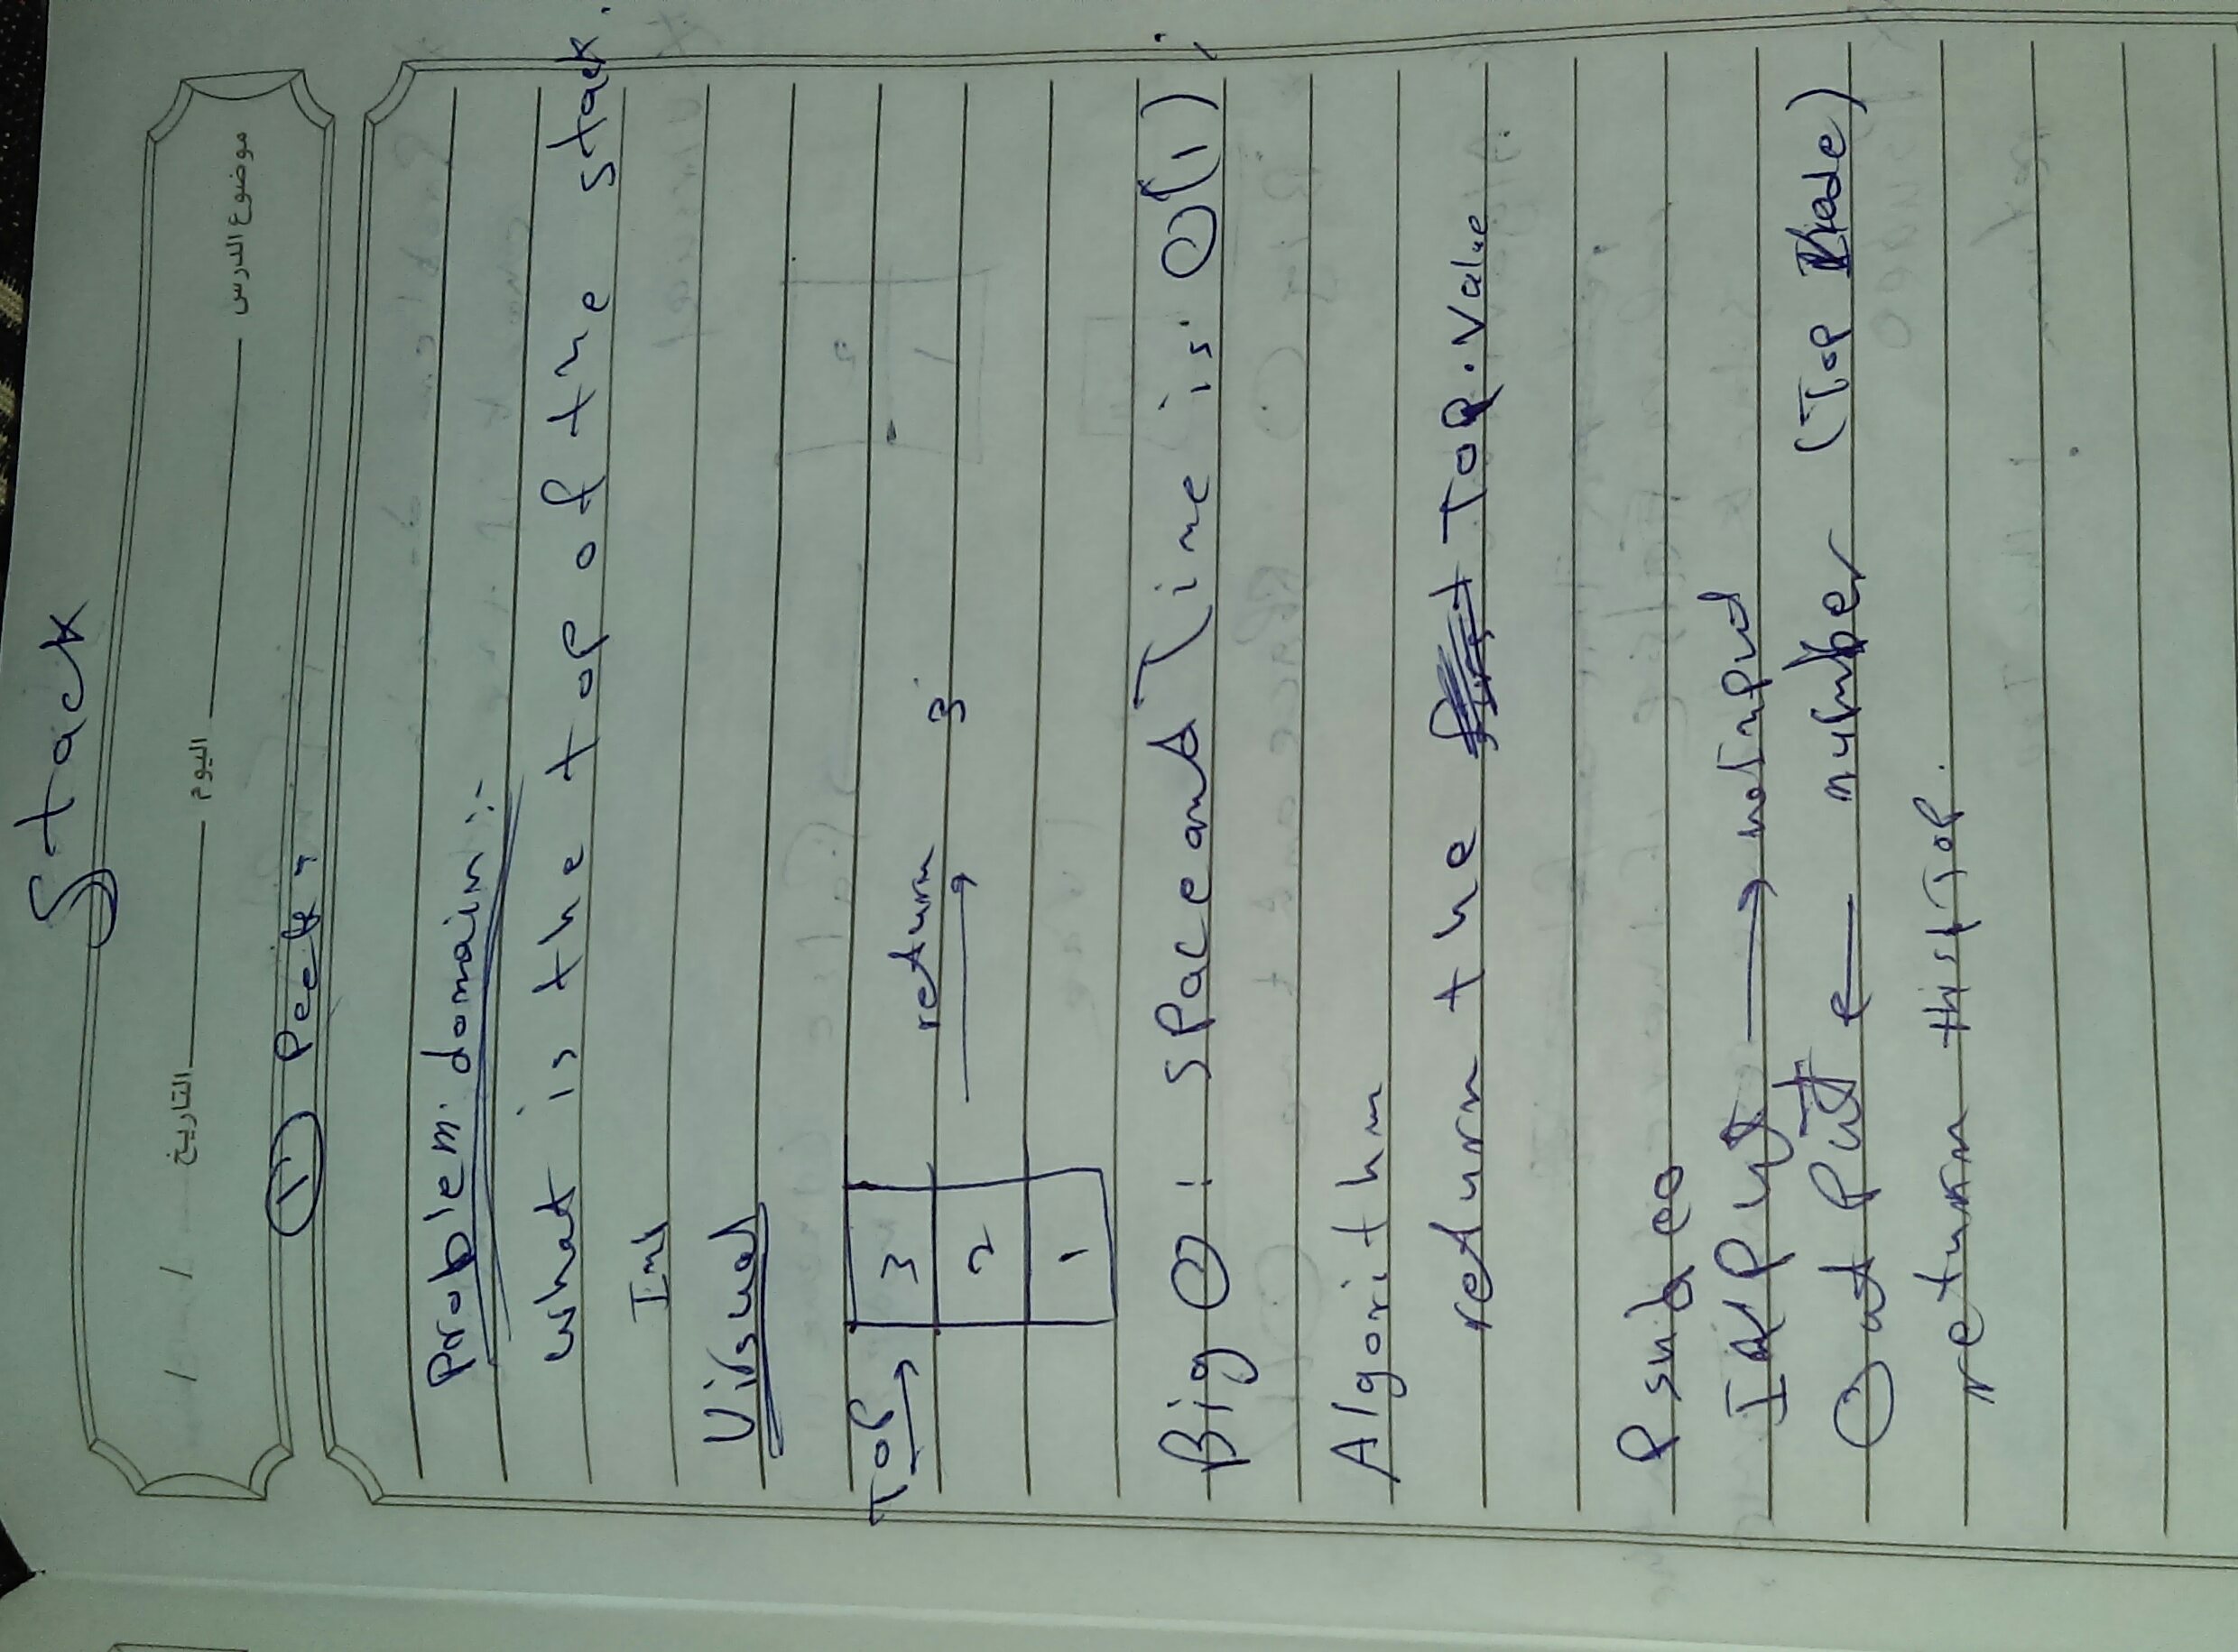 Stack
موضوع الدرس اليوم التاريخ / /
① Peek:
Problem domain:-
what is the top of the stack.
Visual
Top → 3 return 3
2
1
Big O: space and Time is O(1);
Algorithm
return the Top.value
Psudeo
InPut → no Input
OutPut ← number (Top Node)
return this.Top.